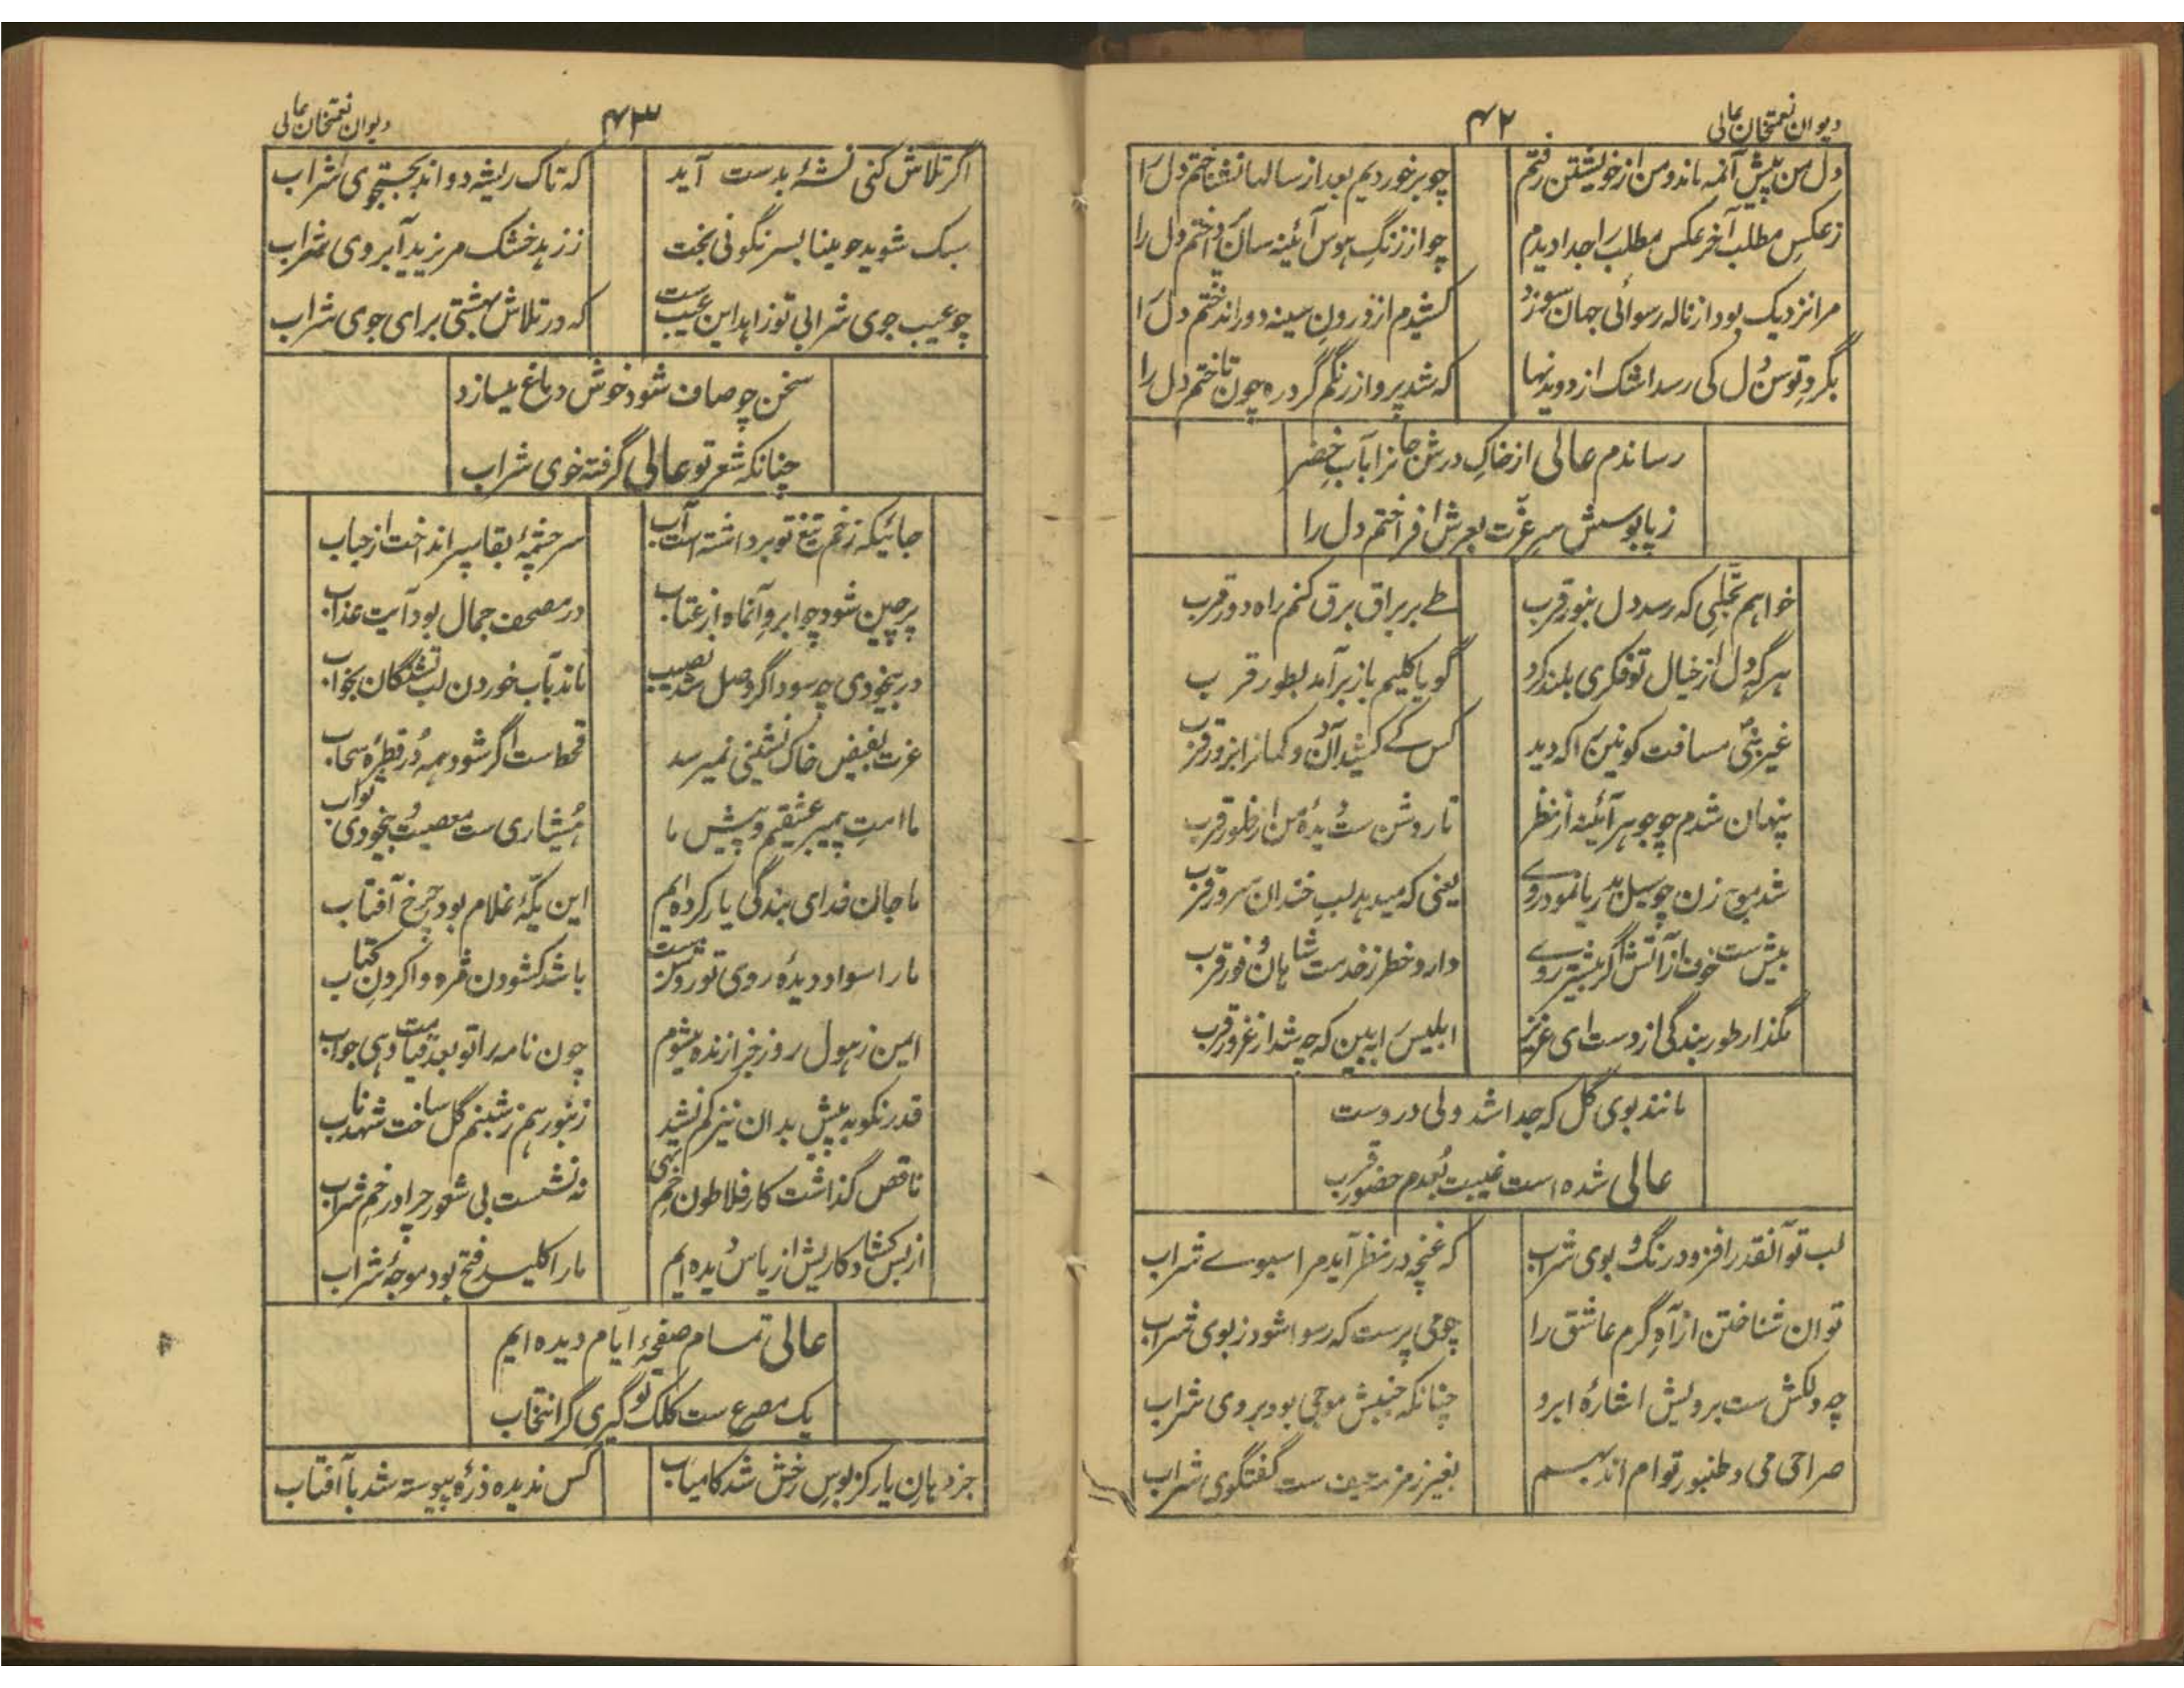 دیوان نعمتخان عالی
۴۲
دل من پیش آنمه ماند و من از خویشتن رفتم
چو برخوردیم بعد از سالها نشناختم دل را
ز عکسِ مطلب آخر عکس مطلب را جدا دیدم
چو از زنگِ ہوس آئینہ سان پرداختم دل را
مرا نزدیک بود از نالہ رسوائی جهان سوزد
کشیدم از درونِ سینہ دور انداختم دل را
بگردِ توسن دل کی رسد اشک از دویدنها
کہ شد پرواز رنگم گرد رہ چون تاختم دل را
رساندم عالی از خاکِ درش جانرا بآبِ خضر
ز پابوسش سرِ عزّت بعرش افراختم دل را
خواہم تجلّیی کہ رسد دل بنور قرب
طے بر براق برق کنم راہ دور قرب
ہرگہ دل از خیال تو فکری بلند کرد
گویا کلیم باز برآمد بطور قرب
غیر نبیؐ مسافت کونین را کہ دید
کس کے کشید آن دو کمانرا بزور قرب
پنہان شدم چو جوہر آئینہ از نظر
تا روشن ست دیدۂ من از ظہور قرب
شد موج زن چو سیل بدریا نمود روے
یعنی کہ میدہد لبِ خندان سرور قرب
بیش ست خوف از آتش اگر بیشتر روے
دارد خطر ز خدمت شاہان وفور قرب
مگذار طور بندگی از دست ای عزیز
ابلیس را ببین کہ چہ شد از غرور قرب
مانند بوی گل کہ جدا شد ولی دروست
عالی شدہ است غیبت بُعدم حضور قرب
لب تو آنقدر افزود رنگ و بوی شراب
کہ غنچہ در نظر آید مرا سبوے شراب
توان شناختن از آہِ گرم عاشق را
چو می پرست کہ رسوا شود ز بوی شراب
چہ دلکش ست برویش اشارۂ ابرو
چنانکہ جنبش موجی بود بروی شراب
صراحی می و طنبور توام اند بہم
بغیر زمزمہ حیف ست گفتگوی شراب
دیوان نعمتخان عالی
۴۳
اگر تلاش کنی نشۂ بدست آید
کہ تاک ریشہ دواند بجستجوی شراب
سبک شوید چو مینا بسر نگونی بخت
ز زہد خشک مریزید آبروی شراب
چو عیب جوی شرابی تو زاہد این عیب ست
کہ در تلاش بہشتی برای جوی شراب
سخن چو صاف شود خوش دماغ میسازد
چنانکہ شعر تو عالی گرفتہ خوی شراب
جائیکہ زخم تیغ تو برداشتہ است آب
سرچشمۂ بقا سپر انداخت از حباب
پرچین شود چو ابروِ آنماہ از عتاب
در مصحف جمال بود آیت عذاب
در بیخودی چہ سود اگر وصل شد نصیب
ماند بآب خوردن لب تشنگان بخواب
عزت بفیض خاک نشینی نمیرسد
قحط است اگر شود ہمہ دُر قطرۂ سحاب
ما امتِ پیمبر عشقیم و پیش ما
ہُشیاری ست معصیت و بیخودی ثواب
ما جان فدای بندگی یار کردہ ایم
این یکّہ غلام بود چرخ آفتاب
ما را سواد دیدہ ز روی تو روشن ست
باشد کشودن مژہ وا کردنِ کتاب
ایمن ز ہول روز جزا زندہ میشوم
چون نامہ را تو بعد قیامت دہی جواب
قدر نکو بہ پیش بدان نیز کم نشد
زنبور ہم ز شبنم گل ساخت شہد ناب
ناقص گذاشت کار فلاطون خمِ تہی
نہ نشست بی شعور چرا در خمِ شراب
از بس کشاد کار پیش از یاس دیدہ ایم
ما را کلید فتح بود موجۂ شراب
عالی تمام صفحۂ ایام دیدہ ایم
یک مصرع ست کلک تو گیری گر انتخاب
جز دہانِ یار کز بوسِ رخش شد کامیاب
کس ندیدہ ذرّہ پیوستہ شد با آفتاب